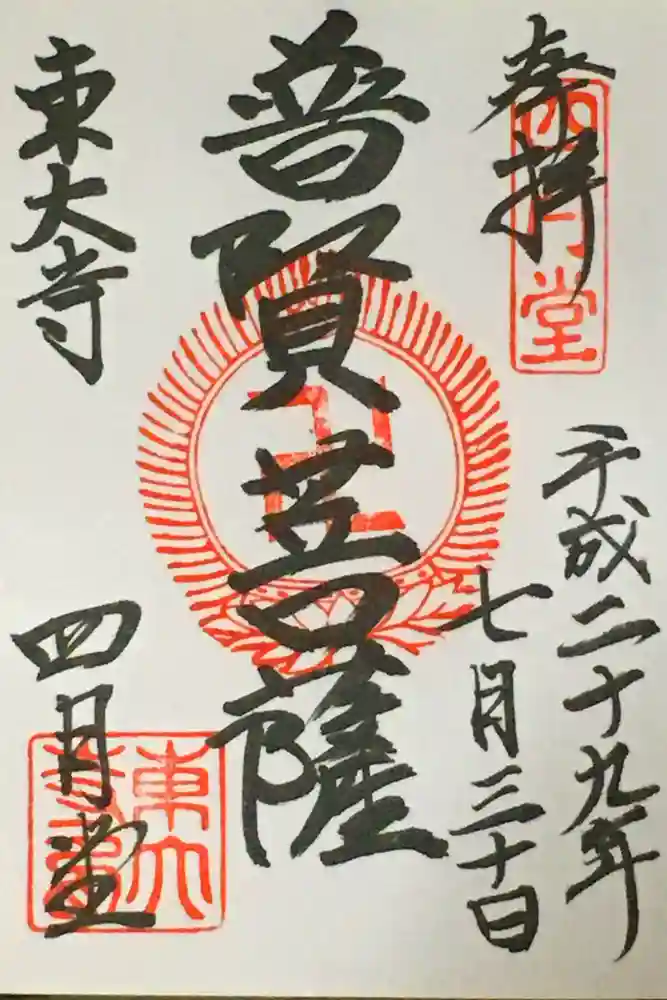 奉拝
四月堂
平成二十九年
七月三十日
普賢菩薩
東大寺
四月堂